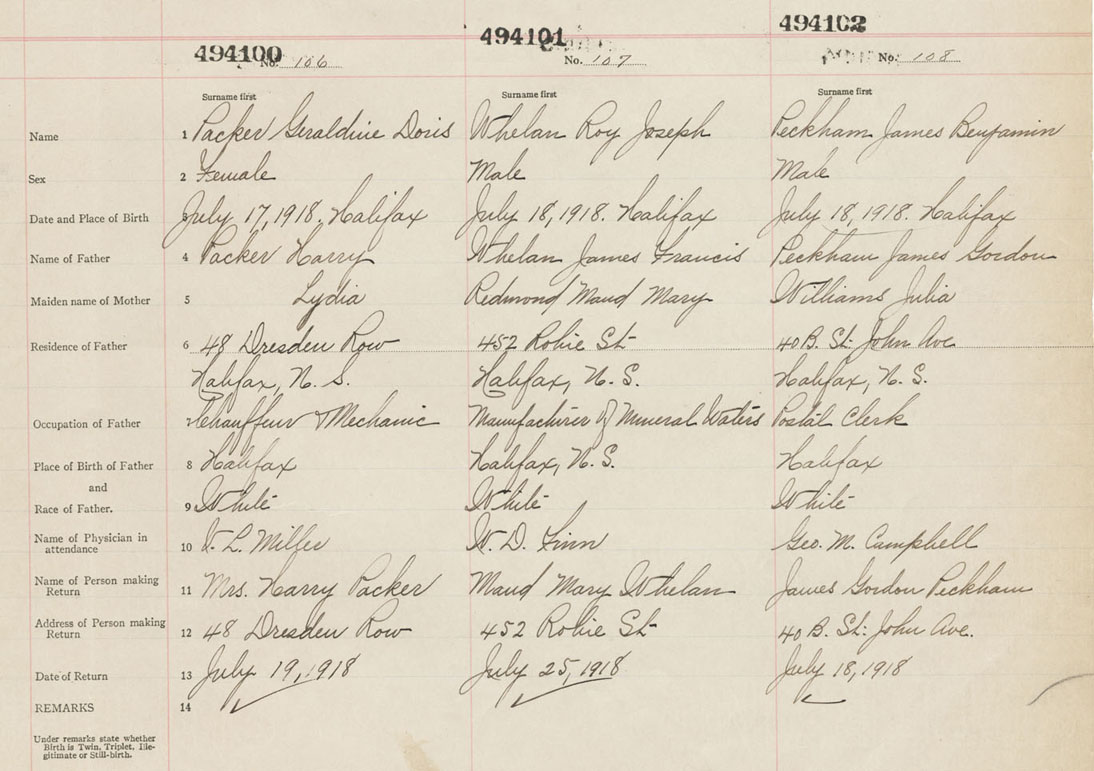 494100 494101 494102
No. 106 No. 107 No. 108
Surname first Surname first Surname first
Name 1 Packer Geraldine Doris Whelan Roy Joseph Peckham James Benjamin
Sex 2 Female Male Male
Date and Place of Birth 3 July 17, 1918. Halifax July 18, 1918. Halifax July 18, 1918. Halifax
Name of Father 4 Packer Harry Whelan James Francis Peckham James Gordon
Maiden name of Mother 5 Lydia Redmond Maud Mary Williams Julia
Residence of Father 6 48 Dresden Row 452 Robie St 40 B. St. John Ave
Halifax, N. S. Halifax, N. S. Halifax, N. S.
Occupation of Father 7 Chauffeur & Mechanic Manufacturer of Mineral Waters Postal Clerk
Place of Birth of Father 8 Halifax Halifax, N. S. Halifax
and
Race of Father. 9 White White White
Name of Physician in
attendance 10 V. L. Miller W. D. Finn Geo. M. Campbell
Name of Person making
Return 11 Mrs. Harry Packer Maud Mary Whelan James Gordon Peckham
Address of Person making
Return 12 48 Dresden Row 452 Robie St 40 B. St. John Ave.
Date of Return 13 July 19, 1918 July 25, 1918 July 18, 1918
REMARKS 14
Under remarks state whether
Birth is Twin, Triplet, Ille-
gitimate or Still-birth.